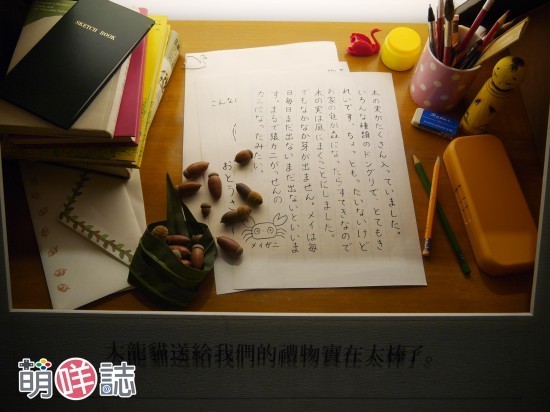 SKETCH BOOK
木の実がたくさん入っていました。
いろんな種類のドングリで、とてもき
れいです。ちょっと、もったいないけど
お家の庭が森になったらすてきなので
木の実は庭にまくことにしました。
でもなかなか芽が出ません。メイは毎
日毎日まだ出ないまだ出ないといいま
す。まるで猿カニがっせんの
カニになったみたい。
メイガニ
おとうさ
こんな
大龍貓送給我們的禮物實在太棒了。
萌咩誌